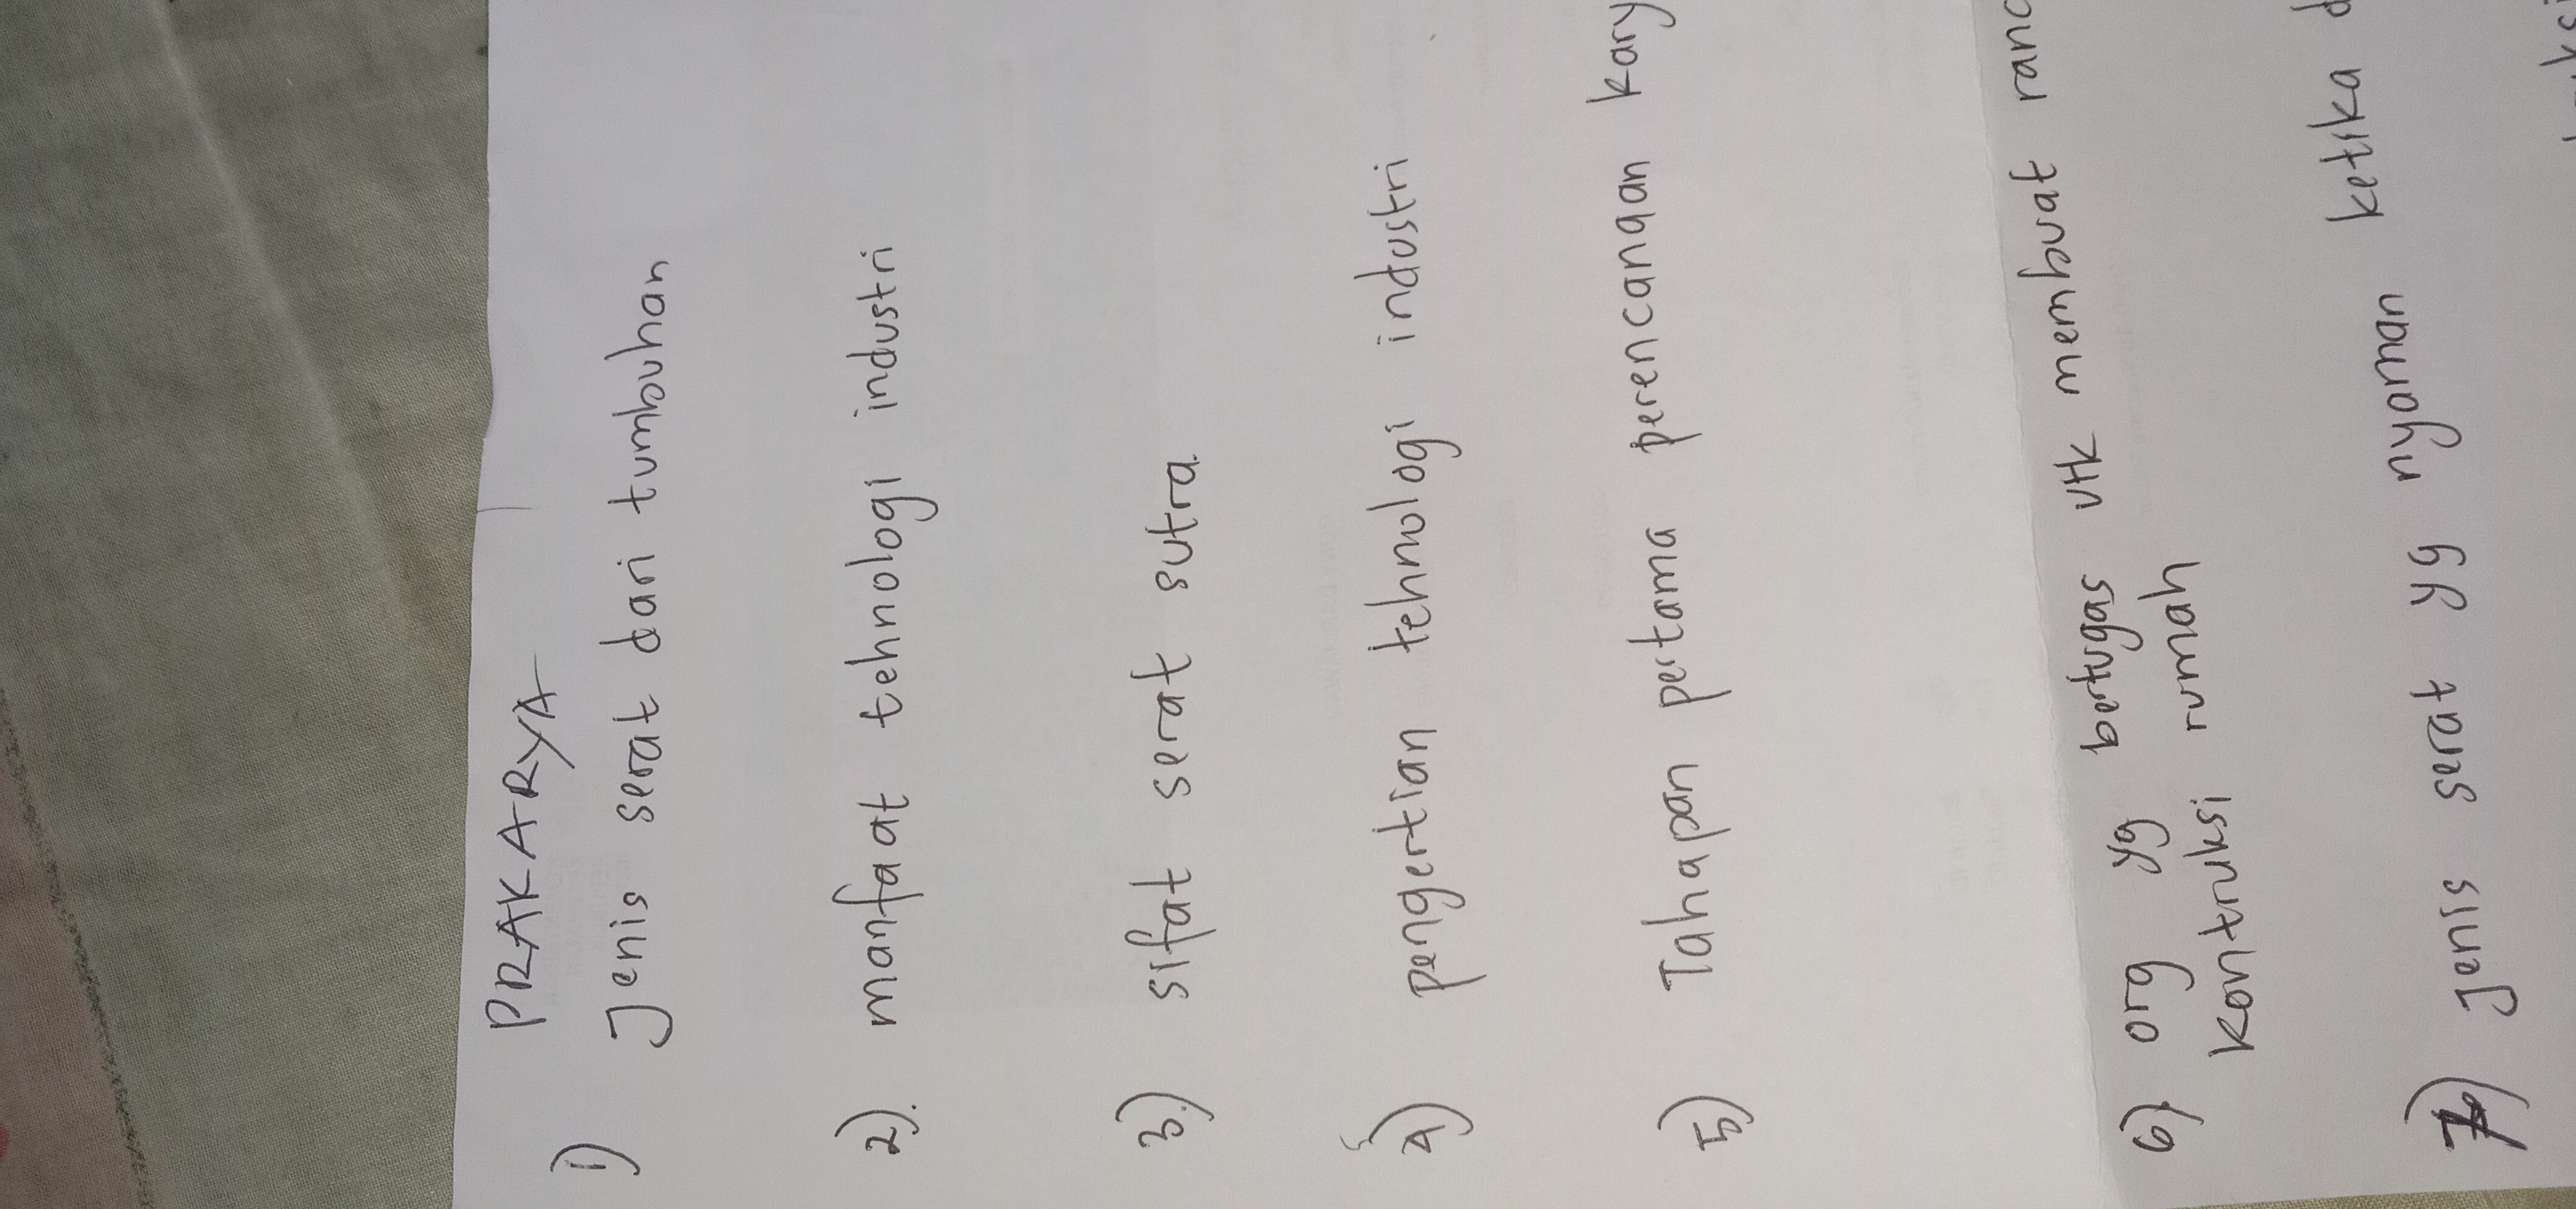 PRAKARYA
1) Jenis serat dari tumbuhan
2). manfaat tehnologi industri
3) sifat serat sutra
4) pengertian tehnologi industri
5) Tahapan pertama perencanaan kary
6) org yg bertugas utk membuat ranc
kontruksi rumah
7) Jenis serat yg nyaman ketika d